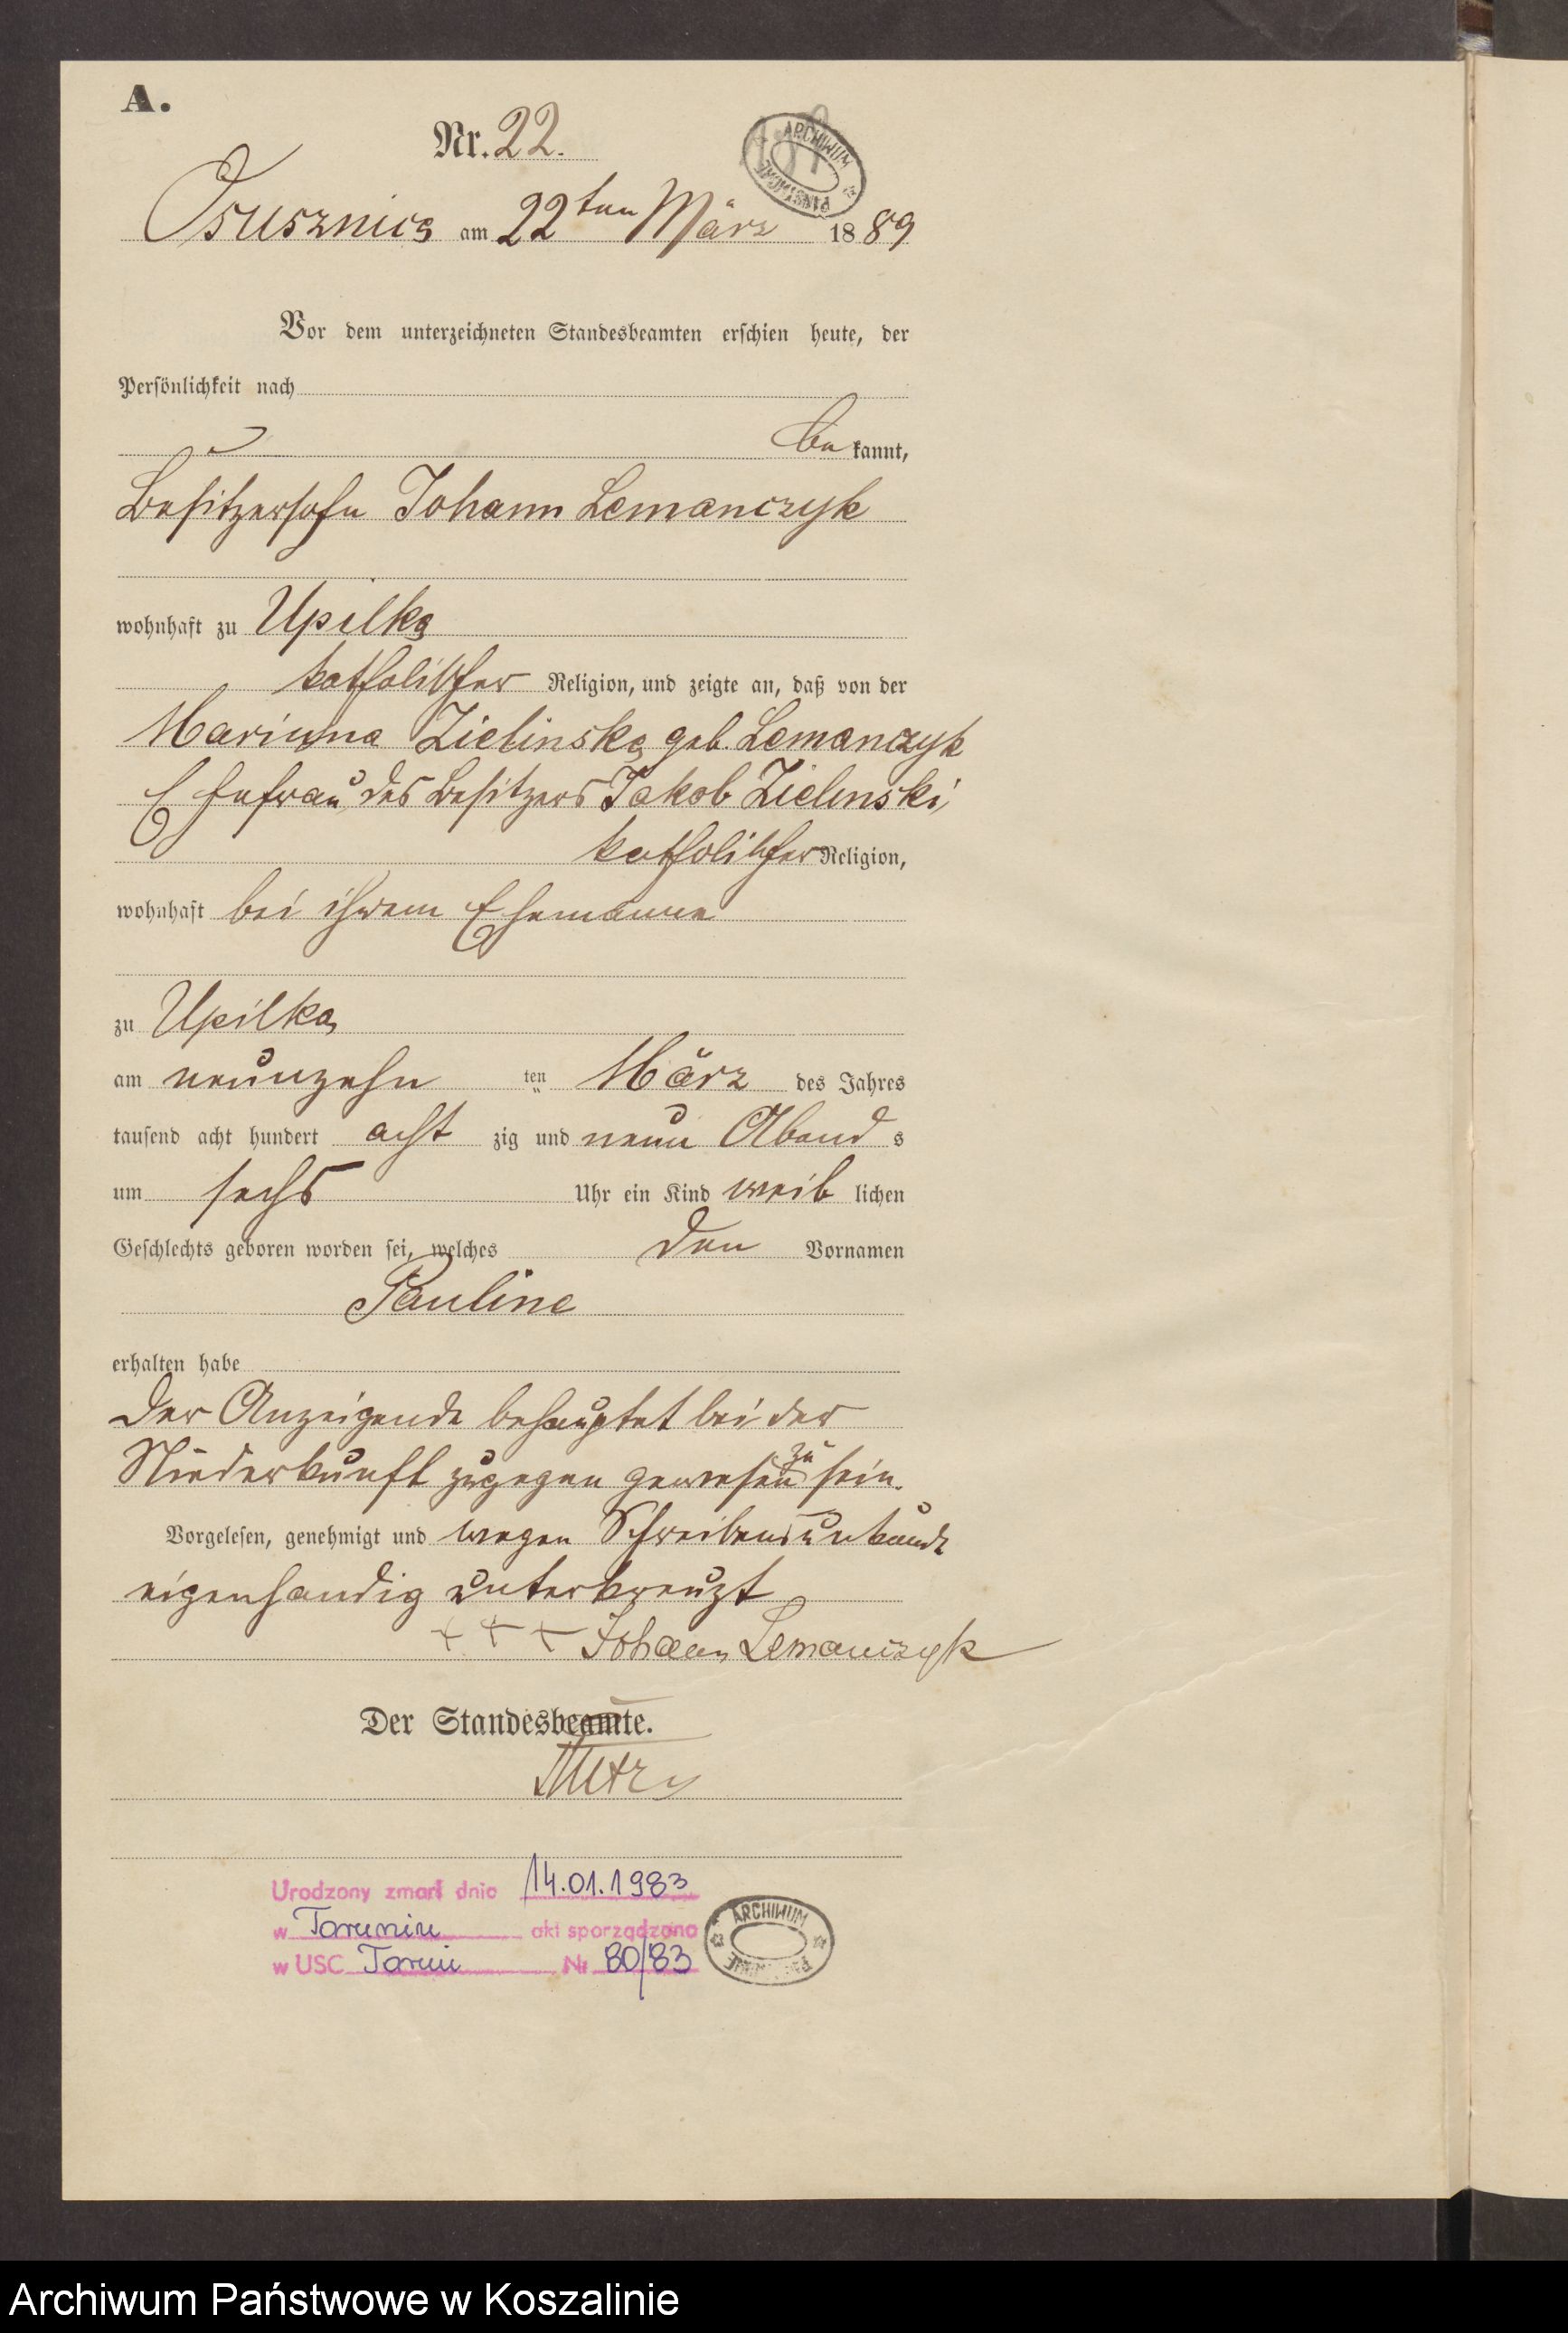 A.
Nr. 22.
ARCHIWUM PAŃSTWOWE
Osusznica am 22ten März 1889
Vor dem unterzeichneten Standesbeamten erschien heute, der
Persönlichkeit nach
bekannt,
Besitzersohn Johann Lemanczyk
wohnhaft zu Upilka
katholischer Religion, und zeigte an, daß von der
Marianna Zielinska geb. Lemanczyk
Ehefrau des Besitzers Jakob Zielinski,
katholischer Religion,
wohnhaft bei ihrem Ehemanne
zu Upilka
am neunzehn ten März des Jahres
tausend acht hundert acht zig und neun Abends
um sechs Uhr ein Kind weiblichen
Geschlechts geboren worden sei, welches den Vornamen
Pauline
erhalten habe
Der Anzeigende behauptet bei der
Niederkunft zugegen gewesen zu sein.
Vorgelesen, genehmigt und wegen Schreibensunkunde
eigenhandig unterkreuzt
+ + + Johann Lemanczyk
Der Standesbeamte.
Urodzony zmarł dnia 14.01.1983
w Toruniu akt sporządzono
w USC Toruń Nr 80/83
ARCHIWUM PAŃSTWOWE
Archiwum Państwowe w Koszalinie